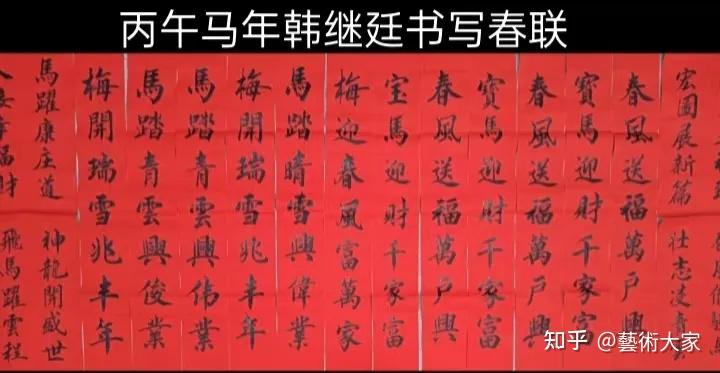 丙午马年韩继廷书写春联
宏圖展新篇
壮志凌青
春風送福萬戶興
寶馬迎財千家富
春風送福萬戶興
寶馬迎財千家富
春風送福萬戶興
宝馬迎財千家富
梅迎春風富萬家
馬踏晴雪興偉業
梅開瑞雪兆丰年
馬踏青雲興伟業
馬踏青雲興俊業
梅開瑞雪兆丰年
馬躍康庄道
神龍開盛世
福財
飛馬躍雲程
知乎 @藝術大家